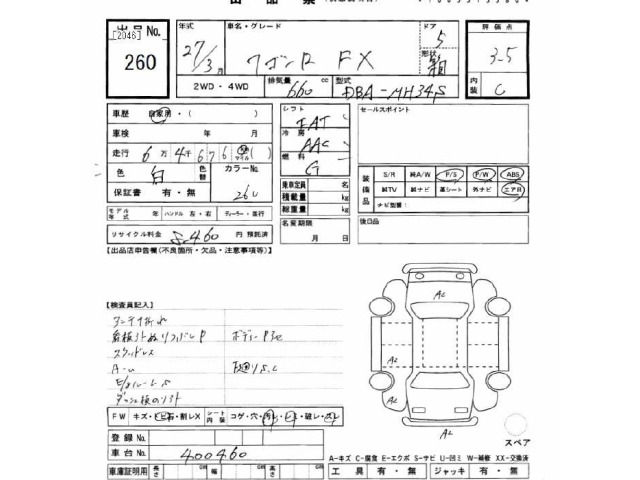 出品票
出品No.
[2046]
260
年式
27/3月
車名・グレード
ワゴンR FX
ドア
5
形状
評価点
3.5
2WD・4WD
排気量
660
cc
型式
DBA-MH34S
内装
C
車歴
自家用・( )
車検
年 月
走行
6万4千676
マイル
( )
色
白
色替
カラーNo.
26U
保証書
有・無
モデル年式
年
ハンドル 左・右
ディーラー・並行
リサイクル料金
8460
円 預託済
シフト
FAT
冷房
AAC
燃料
G
乗車定員
名
積載量
kg
総重量
kg
名変期限
月 日
セールスポイント
装備品
S/R
純A/W
P/S
P/W
ABS
純TV
純ナビ
革シート
外ナビ
エアB
ナビ型番:
後日品
【出品店申告欄(不良箇所・欠品・注意事項等)】
【検査員記入】
アンテナ折れ
スタッドレス
下廻りS.C
A2
A2
A2
A2
A2
FW
キズ・トビ石・割レX
シート内装
コゲ・穴・汚レ・シミ・破レ・スレ
登録No.
車台No.
400460
車庫証明用
長さ
cm
幅
cm
高さ
cm
スペア
A-キズ C-腐食 E-エクボ S-サビ U-凹ミ W-補修 XX-交換済
工具
有・無
ジャッキ
有・無